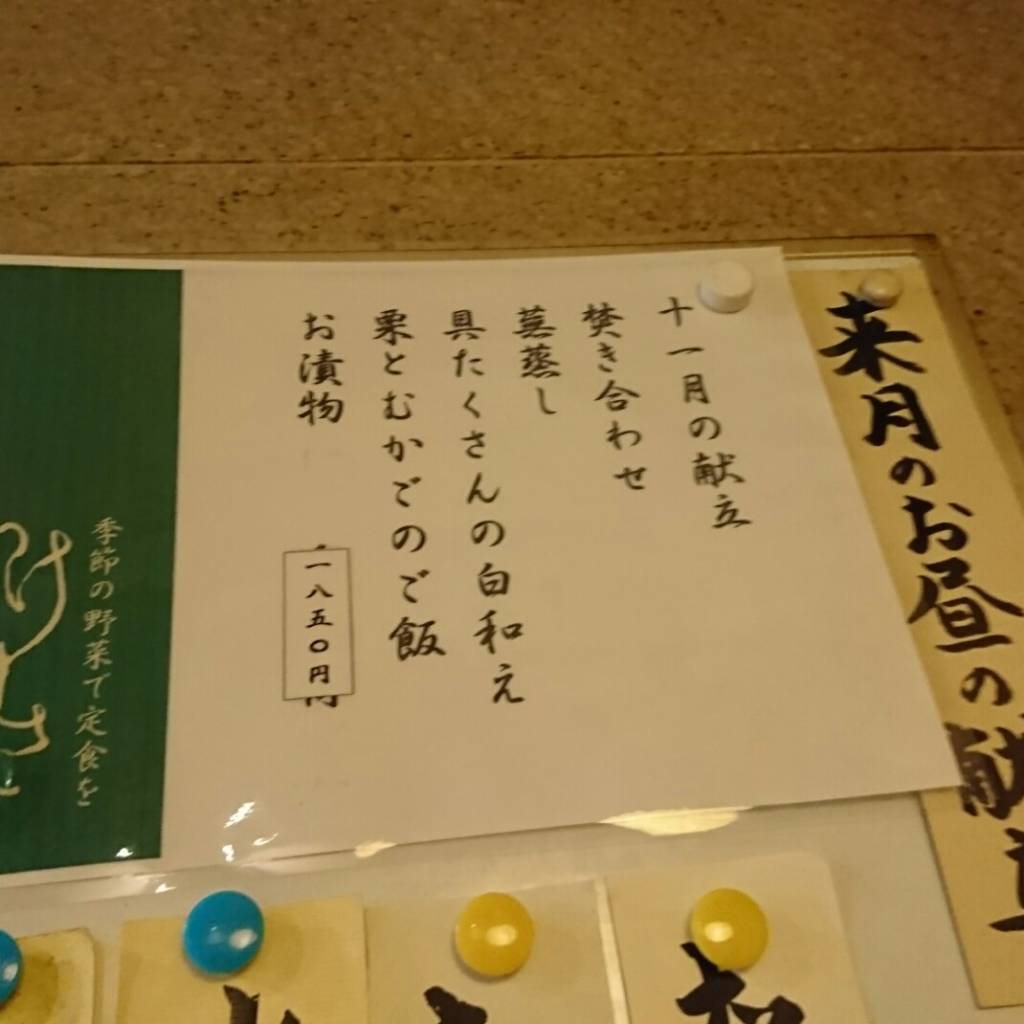 来月のお昼の献立
十一月の献立
焚き合わせ
蕪蒸し
具たくさんの白和え
栗とむかごのご飯
お漬物
一八五〇円
季節の野菜で定食を